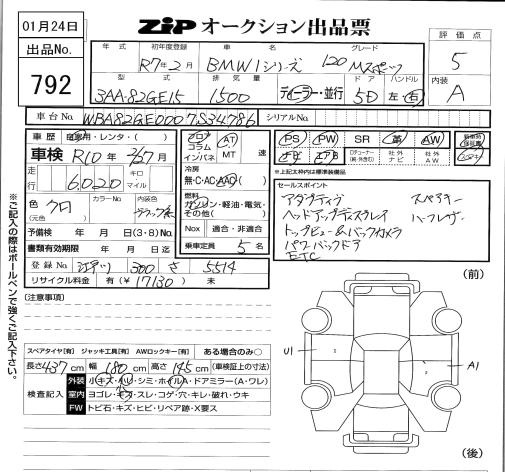 01月24日
ZIP オークション出品票
出品No.
792
評価点
5
内装
A
年式
初年度登録
車名
グレード
R7年2月
BMW 1シリーズ
120 Mスポーツ
型式
排気量
ドア
ハンドル
3AA-82GE15
1500
ディーラー・並行
5D
左・右
車台No.
WBA82GE0007S34786
シリアルNo.
車歴
自家用・レンタ・( )
車検
R10年 2月 7日
走行
6,020
キロ
マイル
色
クロ
(元色)
カラーNo
内装色
ブラック系
予備検 年 月 日(3・8)No.
書類有効期限 年 月 日迄
登録No.
300 さ 5514
リサイクル料金 有(¥17130) 未
フロア
コラム
インパネ
AT
MT
速
冷房
無・C・AC・AAC
燃料
ガソリン・軽油・電気・
その他( )
Nox 適合・非適合
乗車定員 5 名
PS
PW
SR
革
AW
TVチューナー
(純・外含む)
社外
ナビ
社外
AW
新車時
保証書
*上記太枠内は標準装備品
セールスポイント
アダプティブ
スペアキー
ヘッドアップディスプレイ
ハーフレザー
トップビュー&バックカメラ
パワーバックドア
ETC
(注意事項)
スペアタイヤ【有】 ジャッキ工具【有】 AWロックキー【有】 ある場合のみ○
長さ 437 cm 幅 180 cm 高さ 145 cm (車検証上の寸法)
検査記入
外装
小キズ・ハリ・シミ・ホイルA・ドアミラー(A・ワレ)
室内
ヨゴレ・キズ・スレ・コゲ・穴・キレ・破れ・ウキ
FW
トビ石・キズ・ヒビ・リペア跡・X要ス
(前)
U1
A1
(後)
※ご記入の際はボールペンで強くご記入下さい。